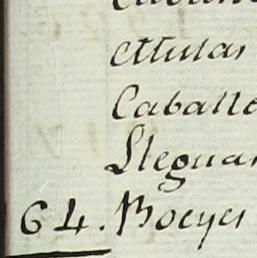 Mulas
Caballo
Lleguas
64. Boeyes